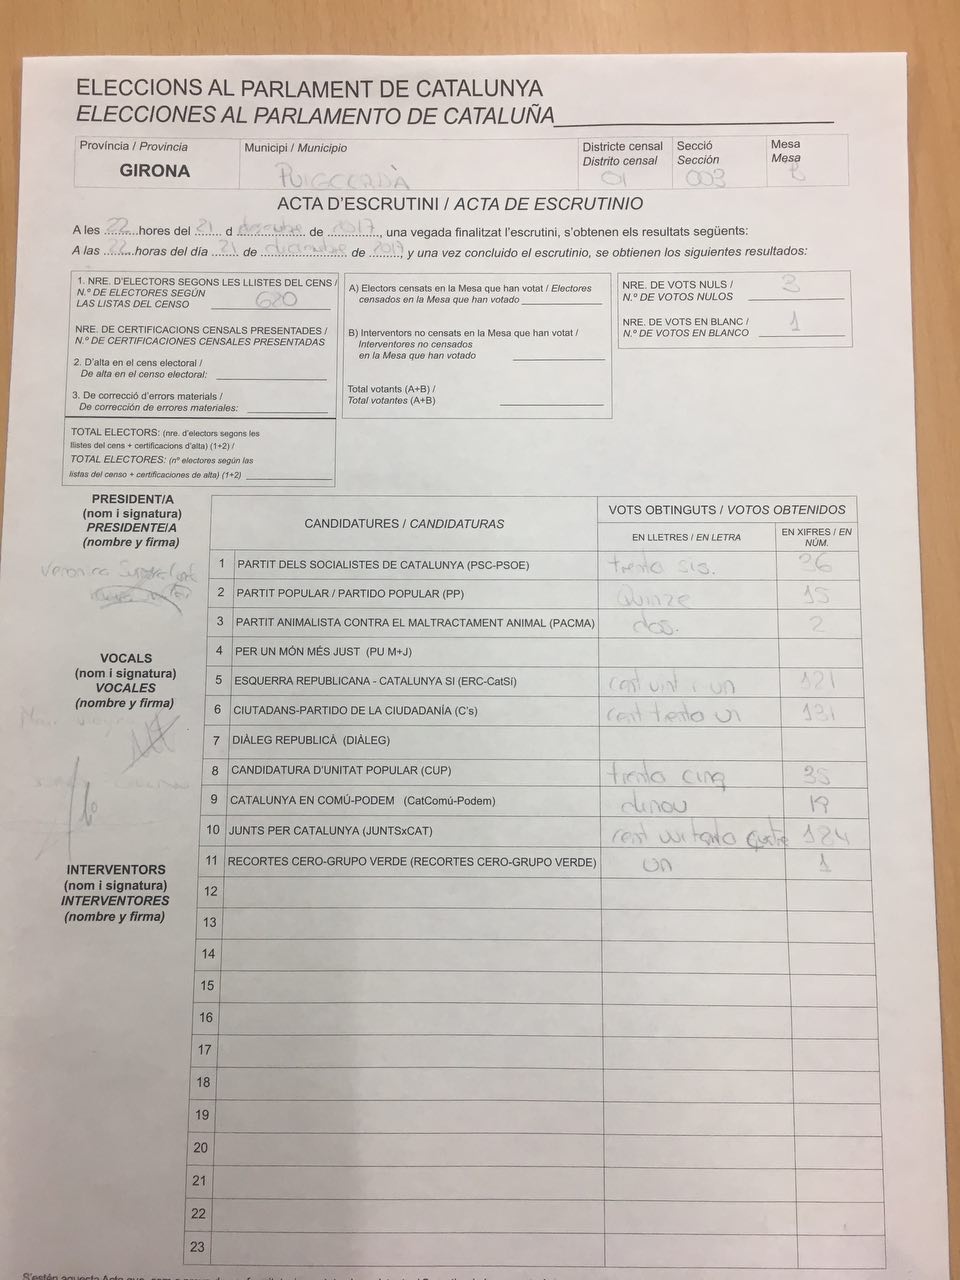 ELECCIONS AL PARLAMENT DE CATALUNYA
ELECCIONES AL PARLAMENTO DE CATALUÑA
Província / Provincia
GIRONA
Municipi / Municipio
PUIGCERDÀ
Districte censal
Distrito censal
01
Secció
Sección
003
Mesa
Mesa
B
ACTA D'ESCRUTINI / ACTA DE ESCRUTINIO
A les 22 hores del 21 d desembre de 2017, una vegada finalitzat l'escrutini, s'obtenen els resultats següents:
A las 22 horas del día 21 de diciembre de 2017, y una vez concluido el escrutinio, se obtienen los siguientes resultados:
1. NRE. D'ELECTORS SEGONS LES LLISTES DEL CENS /
N.º DE ELECTORES SEGÚN
LAS LISTAS DEL CENSO 620
NRE. DE CERTIFICACIONS CENSALS PRESENTADES /
N.º DE CERTIFICACIONES CENSALES PRESENTADAS
2. D'alta en el cens electoral /
De alta en el censo electoral:
3. De correcció d'errors materials /
De corrección de errores materiales:
TOTAL ELECTORS: (nre. d'electors segons les
llistes del cens + certificacions d'alta) (1+2) /
TOTAL ELECTORES: (nº electores según las
listas del censo + certificaciones de alta) (1+2)
A) Electors censats en la Mesa que han votat / Electores
censados en la Mesa que han votado
B) Interventors no censats en la Mesa que han votat /
Interventores no censados
en la Mesa que han votado
Total votants (A+B) /
Total votantes (A+B)
NRE. DE VOTS NULS /
N.º DE VOTOS NULOS 3
NRE. DE VOTS EN BLANC /
N.º DE VOTOS EN BLANCO 1
PRESIDENT/A
(nom i signatura)
PRESIDENTE/A
(nombre y firma)
Veronica
VOCALS
(nom i signatura)
VOCALES
(nombre y firma)
INTERVENTORS
(nom i signatura)
INTERVENTORES
(nombre y firma)
CANDIDATURES / CANDIDATURAS
VOTS OBTINGUTS / VOTOS OBTENIDOS
EN LLETRES / EN LETRA
EN XIFRES / EN
NÚM.
1 PARTIT DELS SOCIALISTES DE CATALUNYA (PSC-PSOE) trenta sis. 36
2 PARTIT POPULAR / PARTIDO POPULAR (PP) Quinze 15
3 PARTIT ANIMALISTA CONTRA EL MALTRACTAMENT ANIMAL (PACMA) dos. 2
4 PER UN MÓN MÉS JUST (PU M+J)
5 ESQUERRA REPUBLICANA - CATALUNYA SI (ERC-CatSí) cent vint i un 121
6 CIUTADANS-PARTIDO DE LA CIUDADANÍA (C's) cent trenta un 131
7 DIÀLEG REPUBLICÀ (DIÀLEG)
8 CANDIDATURA D'UNITAT POPULAR (CUP) trenta cinq 35
9 CATALUNYA EN COMÚ-PODEM (CatComú-Podem) dinou 19
10 JUNTS PER CATALUNYA (JUNTSxCAT) cent vuitanta quatre 184
11 RECORTES CERO-GRUPO VERDE (RECORTES CERO-GRUPO VERDE) un 1
12
13
14
15
16
17
18
19
20
21
22
23